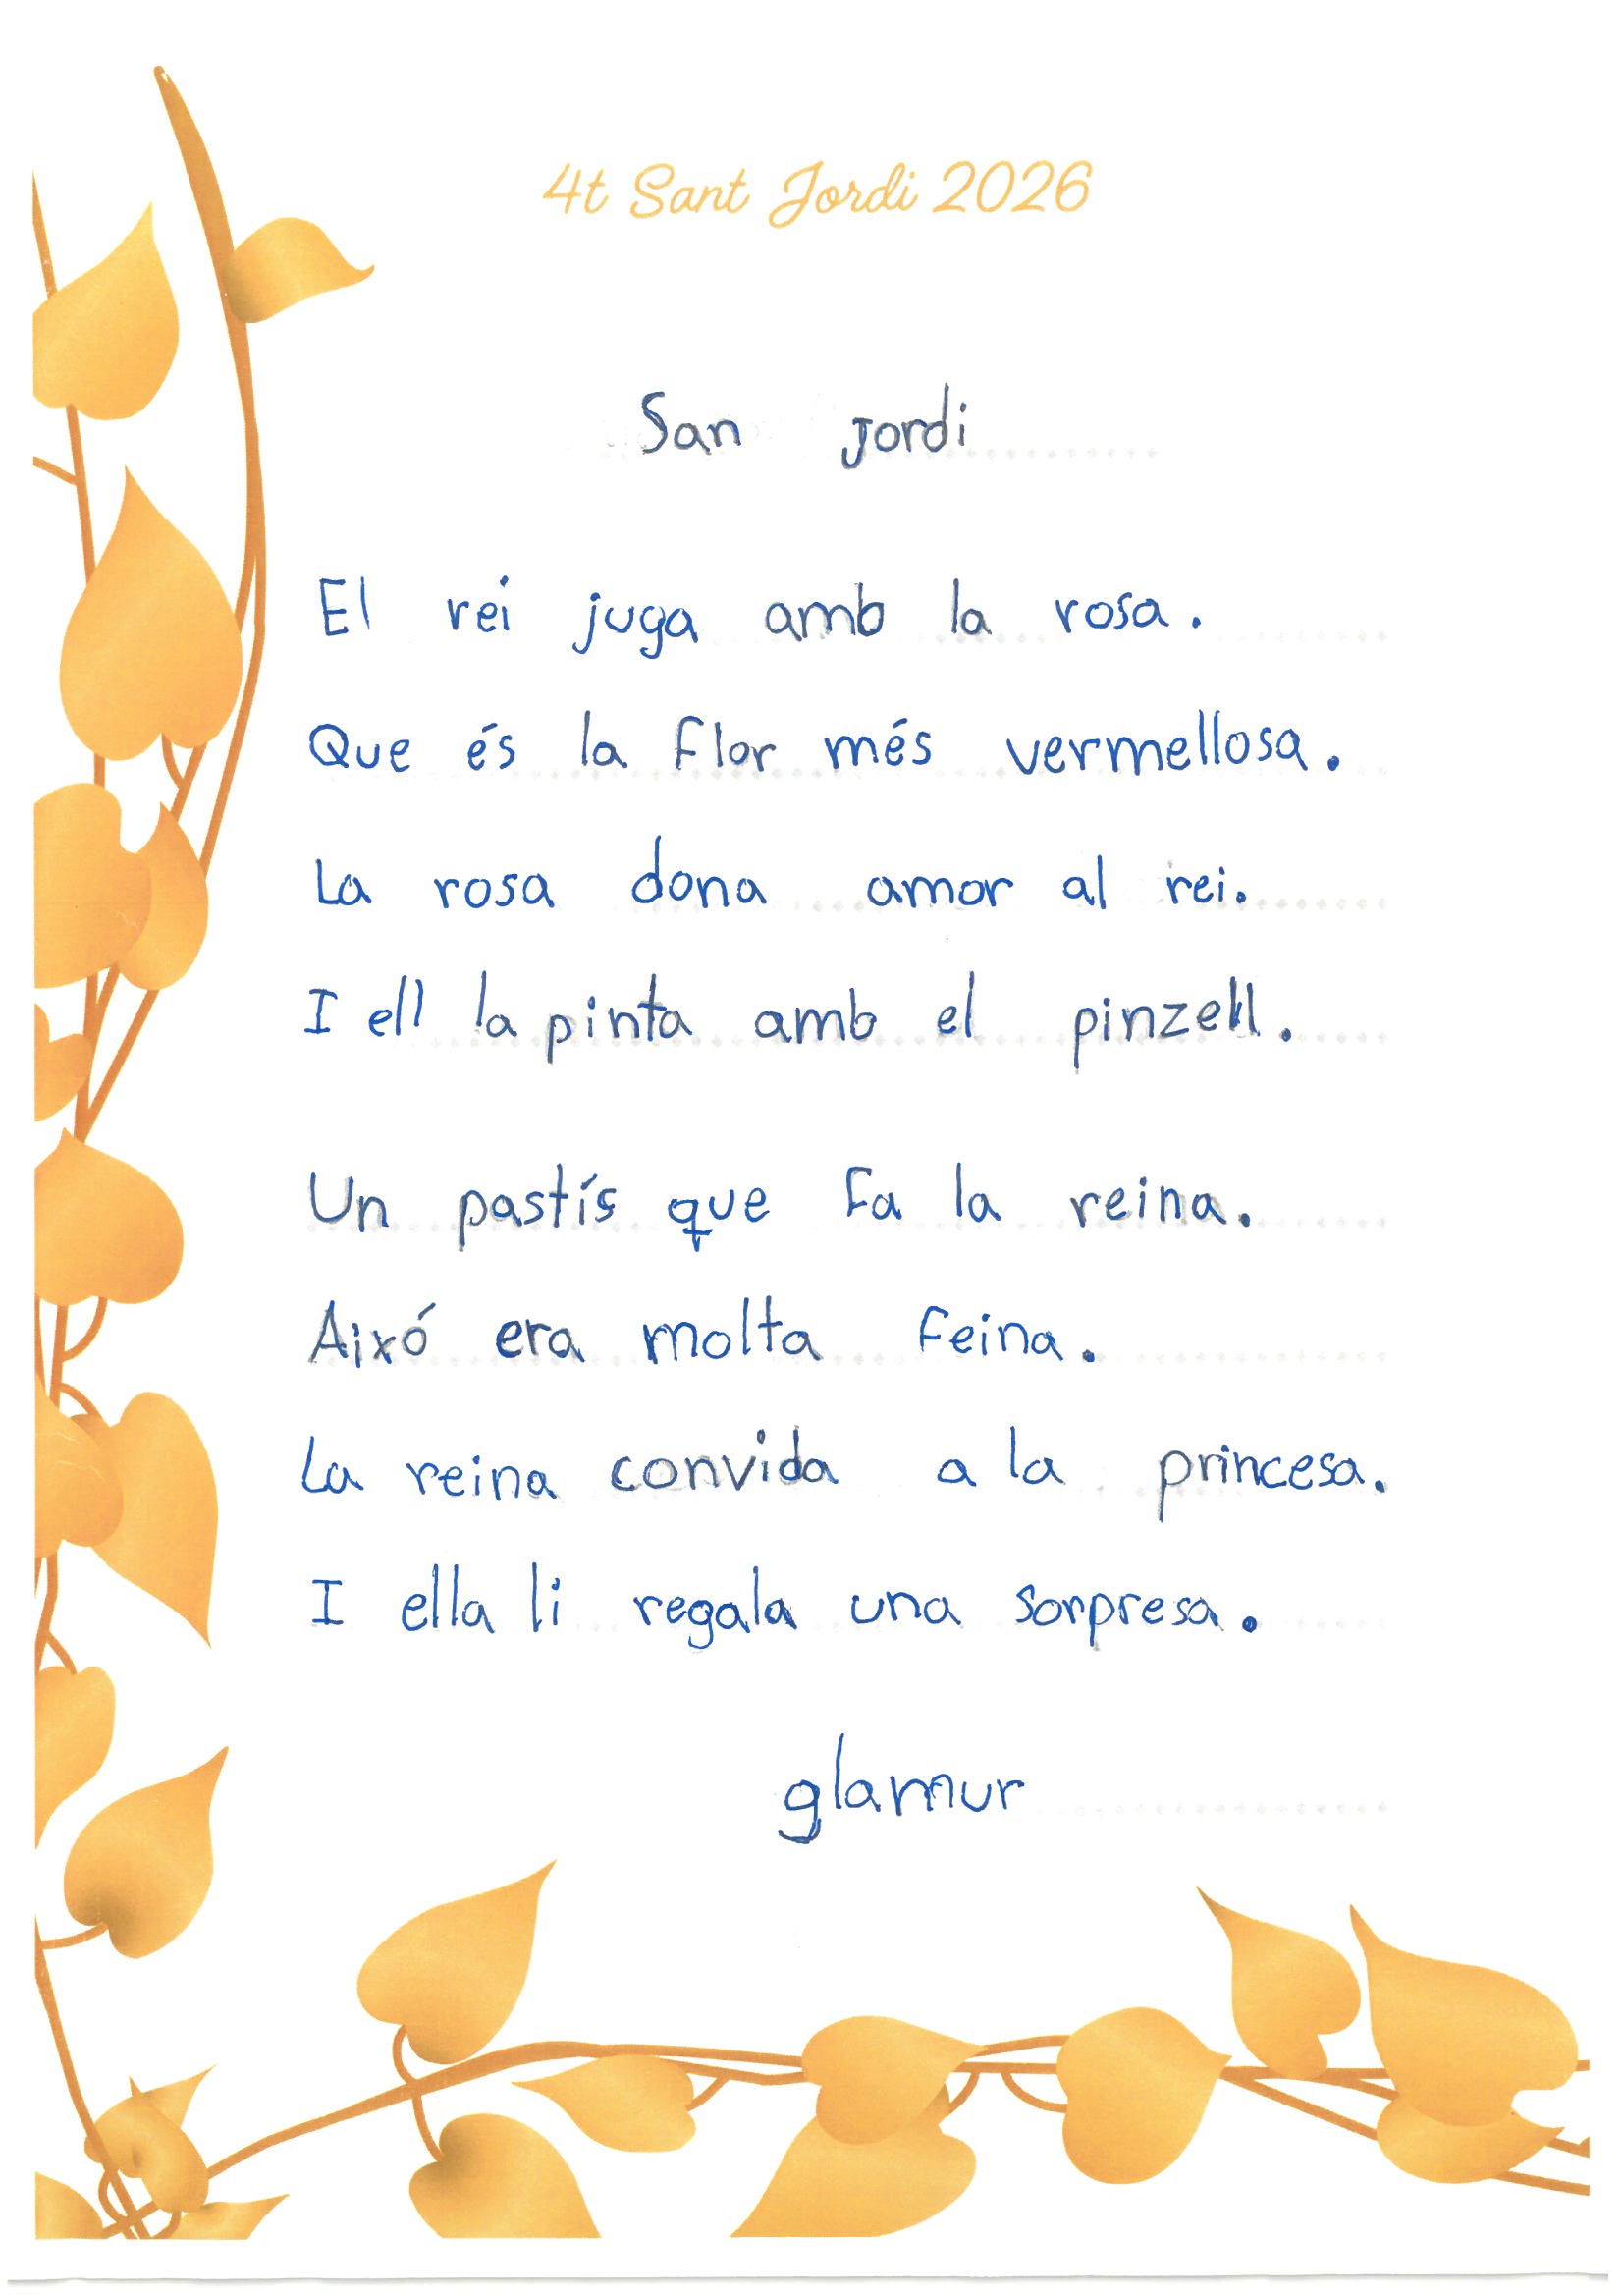 4t Sant Jordi 2026
San Jordi
El rei juga amb la rosa.
Que és la flor més vermellosa.
La rosa dona amor al rei.
I ell la pinta amb el pinzell.
Un pastís que fa la reina.
Aixó era molta feina.
La reina convida a la princesa.
I ella li regala una sorpresa.
glamur